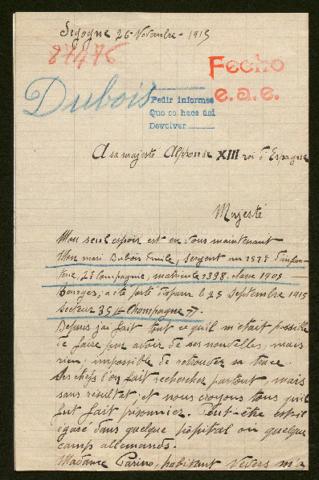 Segogne 26 Novembre - 1915
87476
Fecho
e.a.e.
Dubois
Pedir informes
Que se hace así
Devolver
A sa majesté Alphonse XIII roi d'Espagne
Majesté
Mon seul espoir est en vous maintenant
Mon mari Dubois Emile, sergent au d'infan-
terie, 2e Compagnie, matricule 1338. classe 1909
Bourges, a été porté disparu le 25 Septembre 1915
Secteur
Depuis j'ai fait tout ce qu'il m'était possible
de faire pour avoir de ses nouvelles, mais
rien impossible de retrouver sa trace.
Ses chefs l'on fait rechercher partout, mais
sans resultat, et nous croyons tous qu'il
fut fait prisonnier. Peut-être est-il
égaré dans quelque hôpital ou quelque
camp allemands.
Madame habitant Nevers m'a